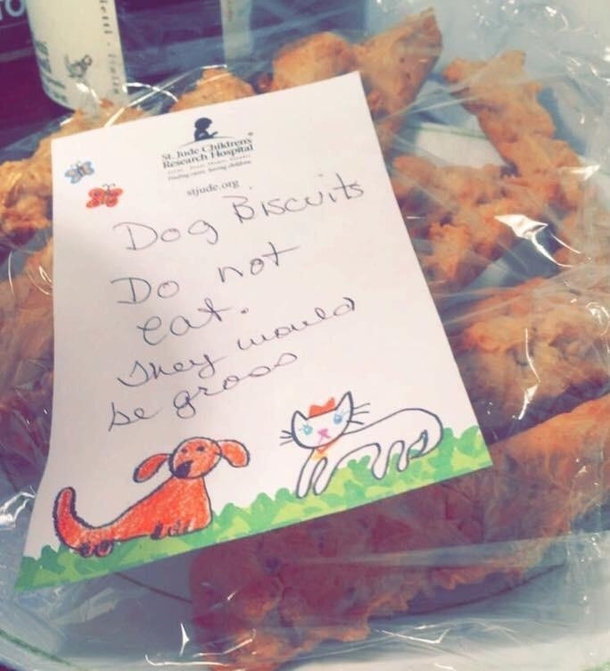 St. Jude Children's
Research Hospital
Finding cures. Saving children.
stjude.org
Dog Biscuits
Do not
eat.
They would
be gross